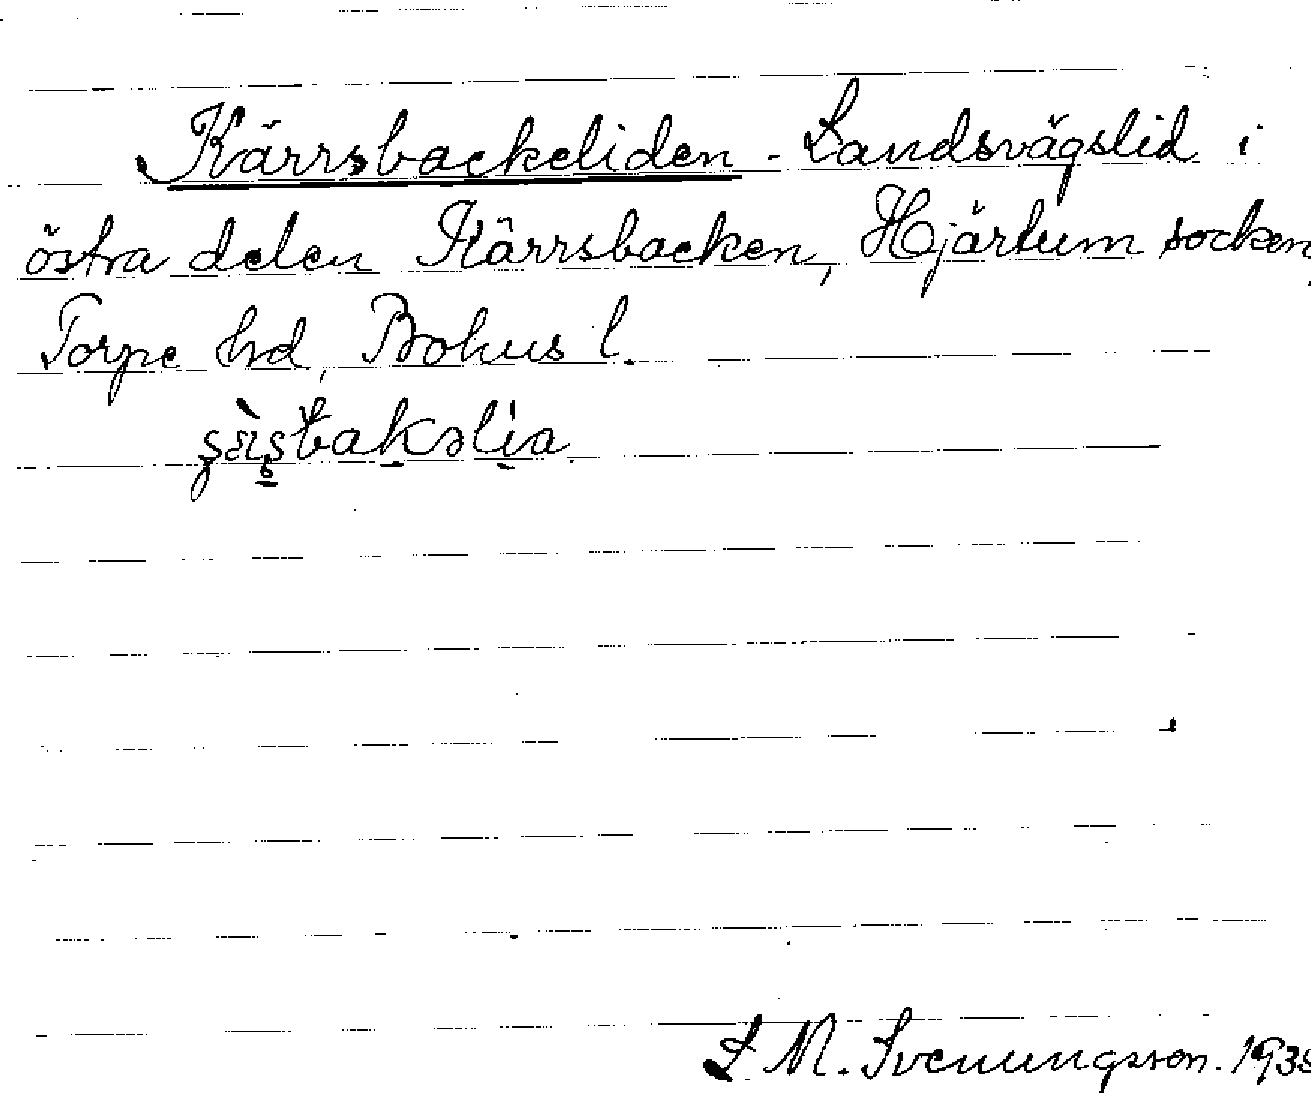 Kärrsbackeliden - Landsvägslid i
östra delen Kärrsbacken, Hjärtum socken,
Torpe hd, Bohus l.
L. M. Svenungsson. 1938